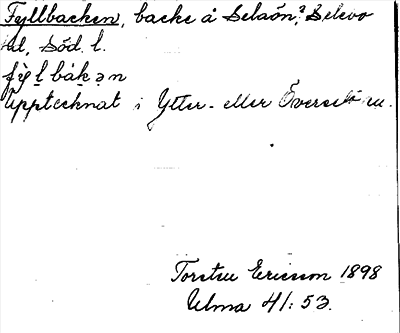 Fyllbacken, backe å Selaön, Selebo
hd, Söd. l.
fỳl̠ bák̠ən
Upptecknat i Ytter- eller Överselö sn.
Torsten Ericsson 1898
Ulma 41:53.